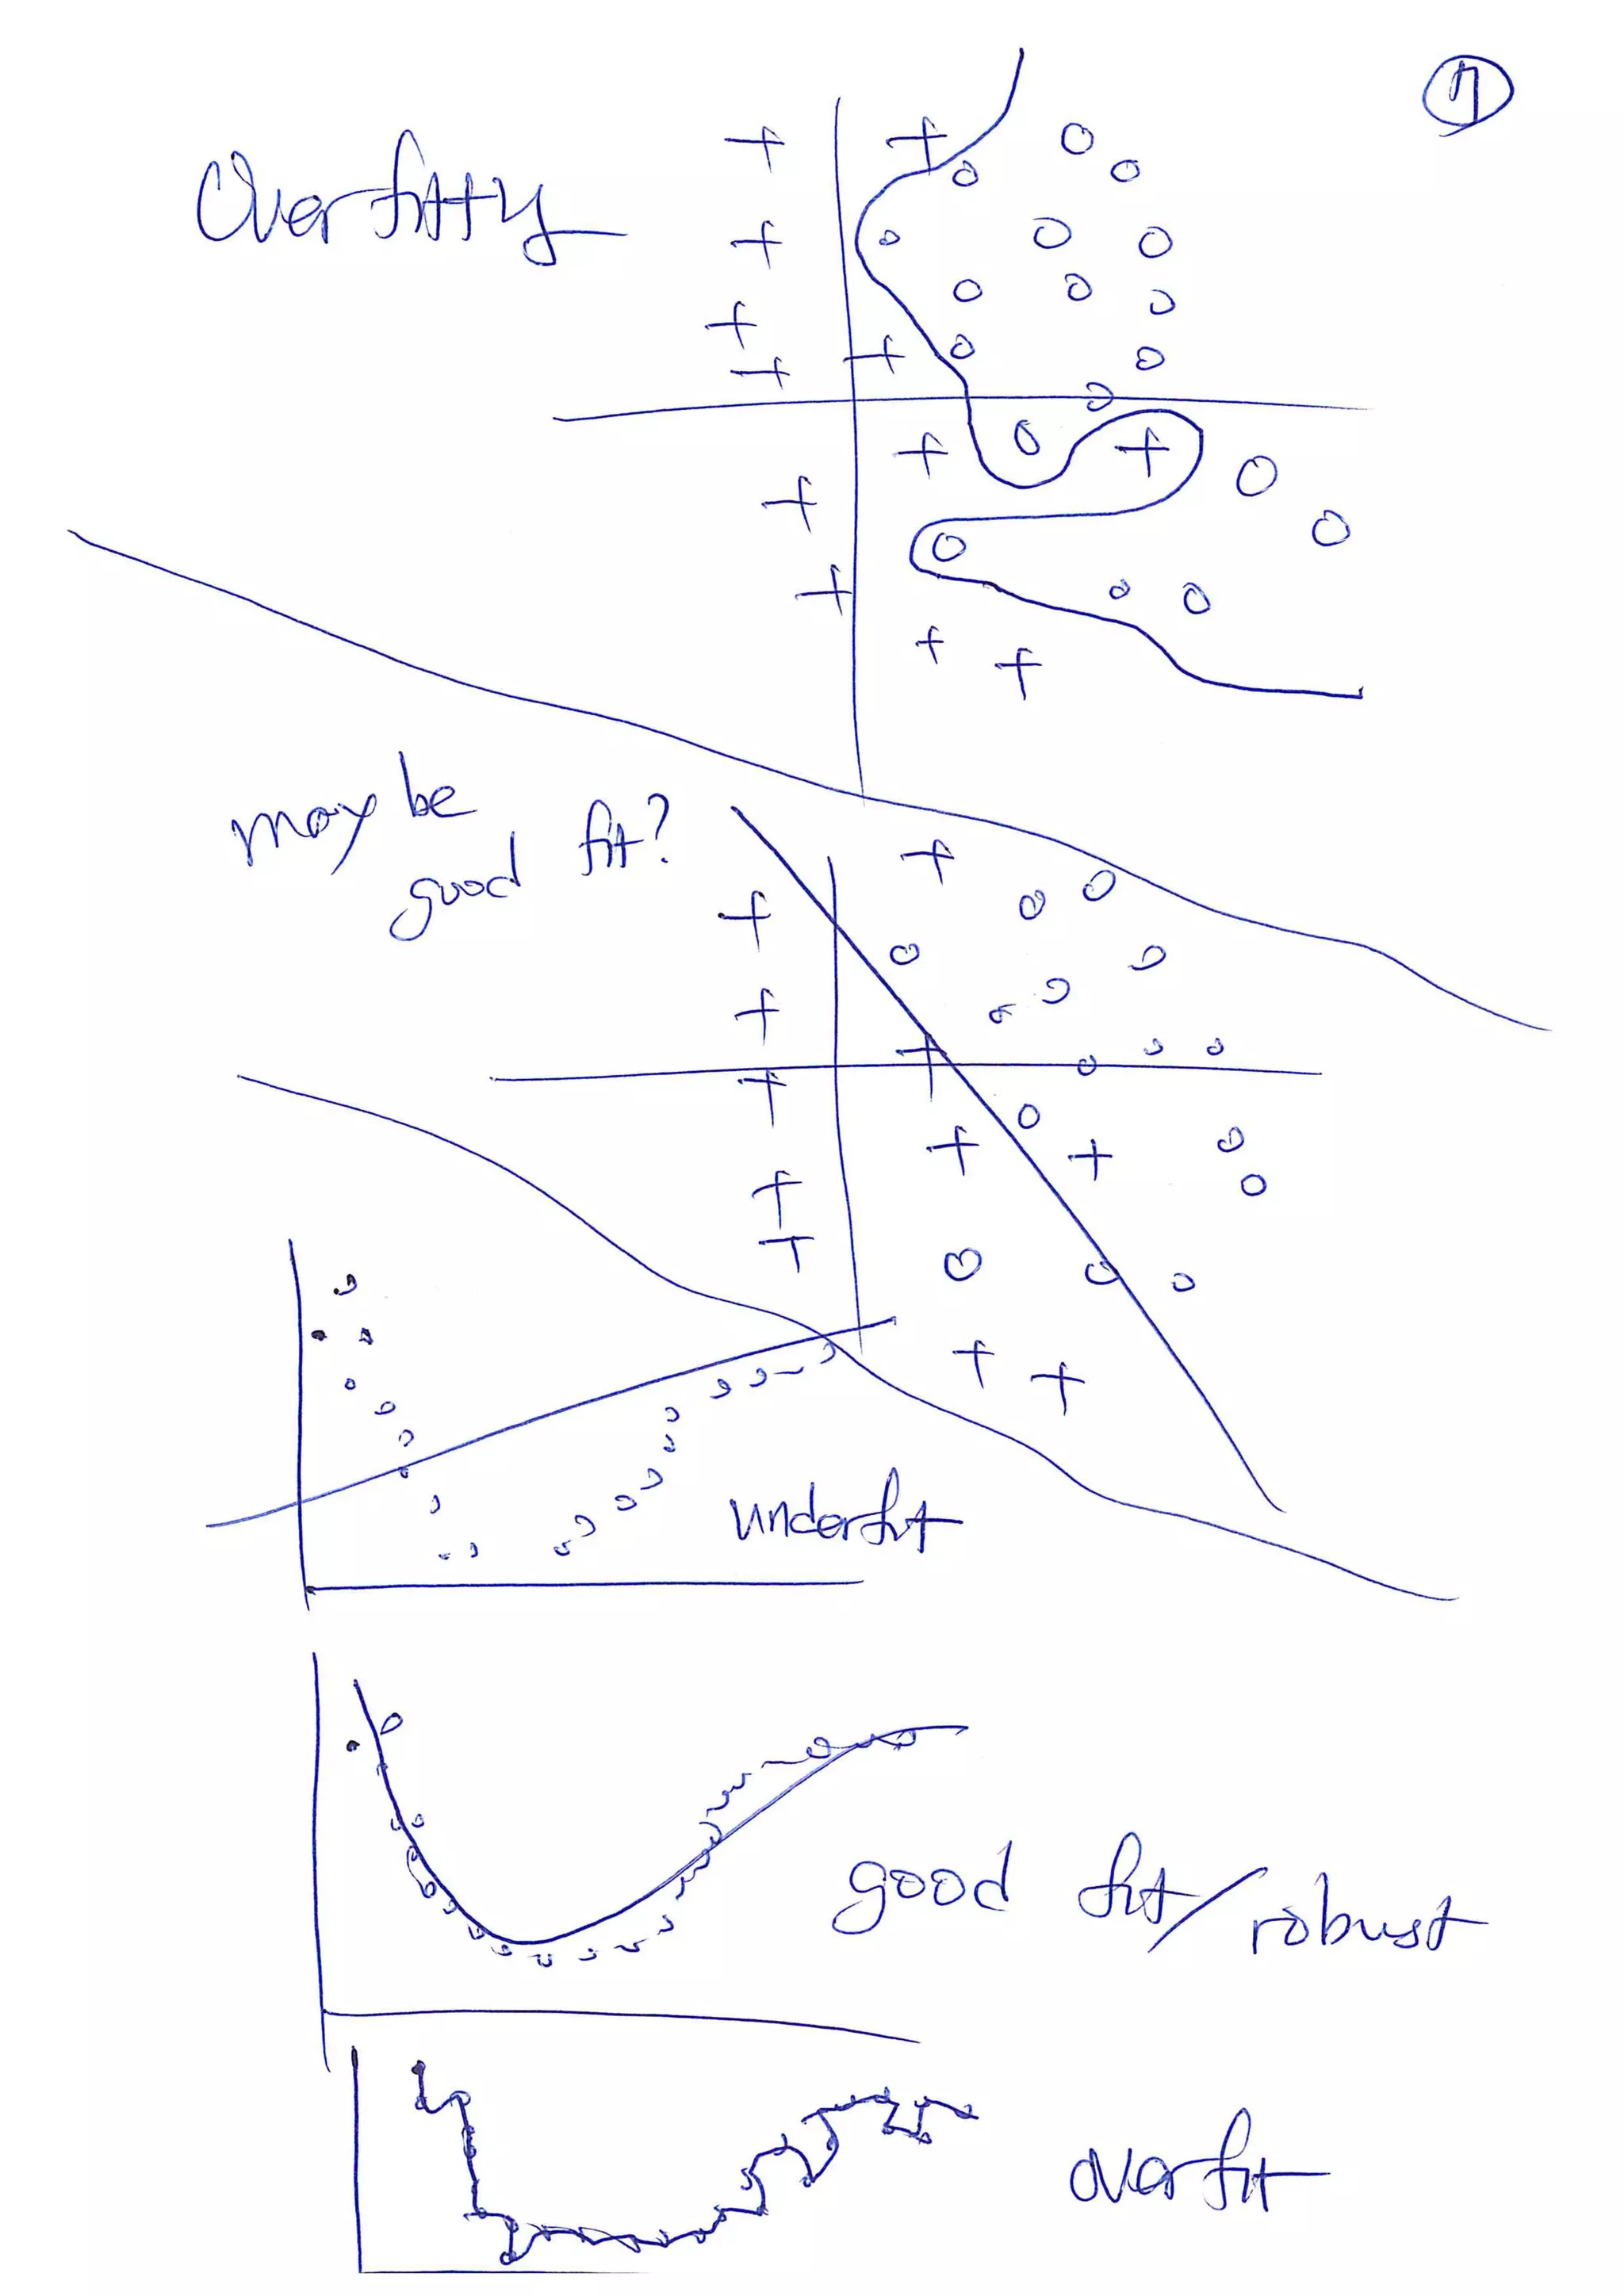 Overfitty
may be
good fit?
underfit
good fit/robust
overfit